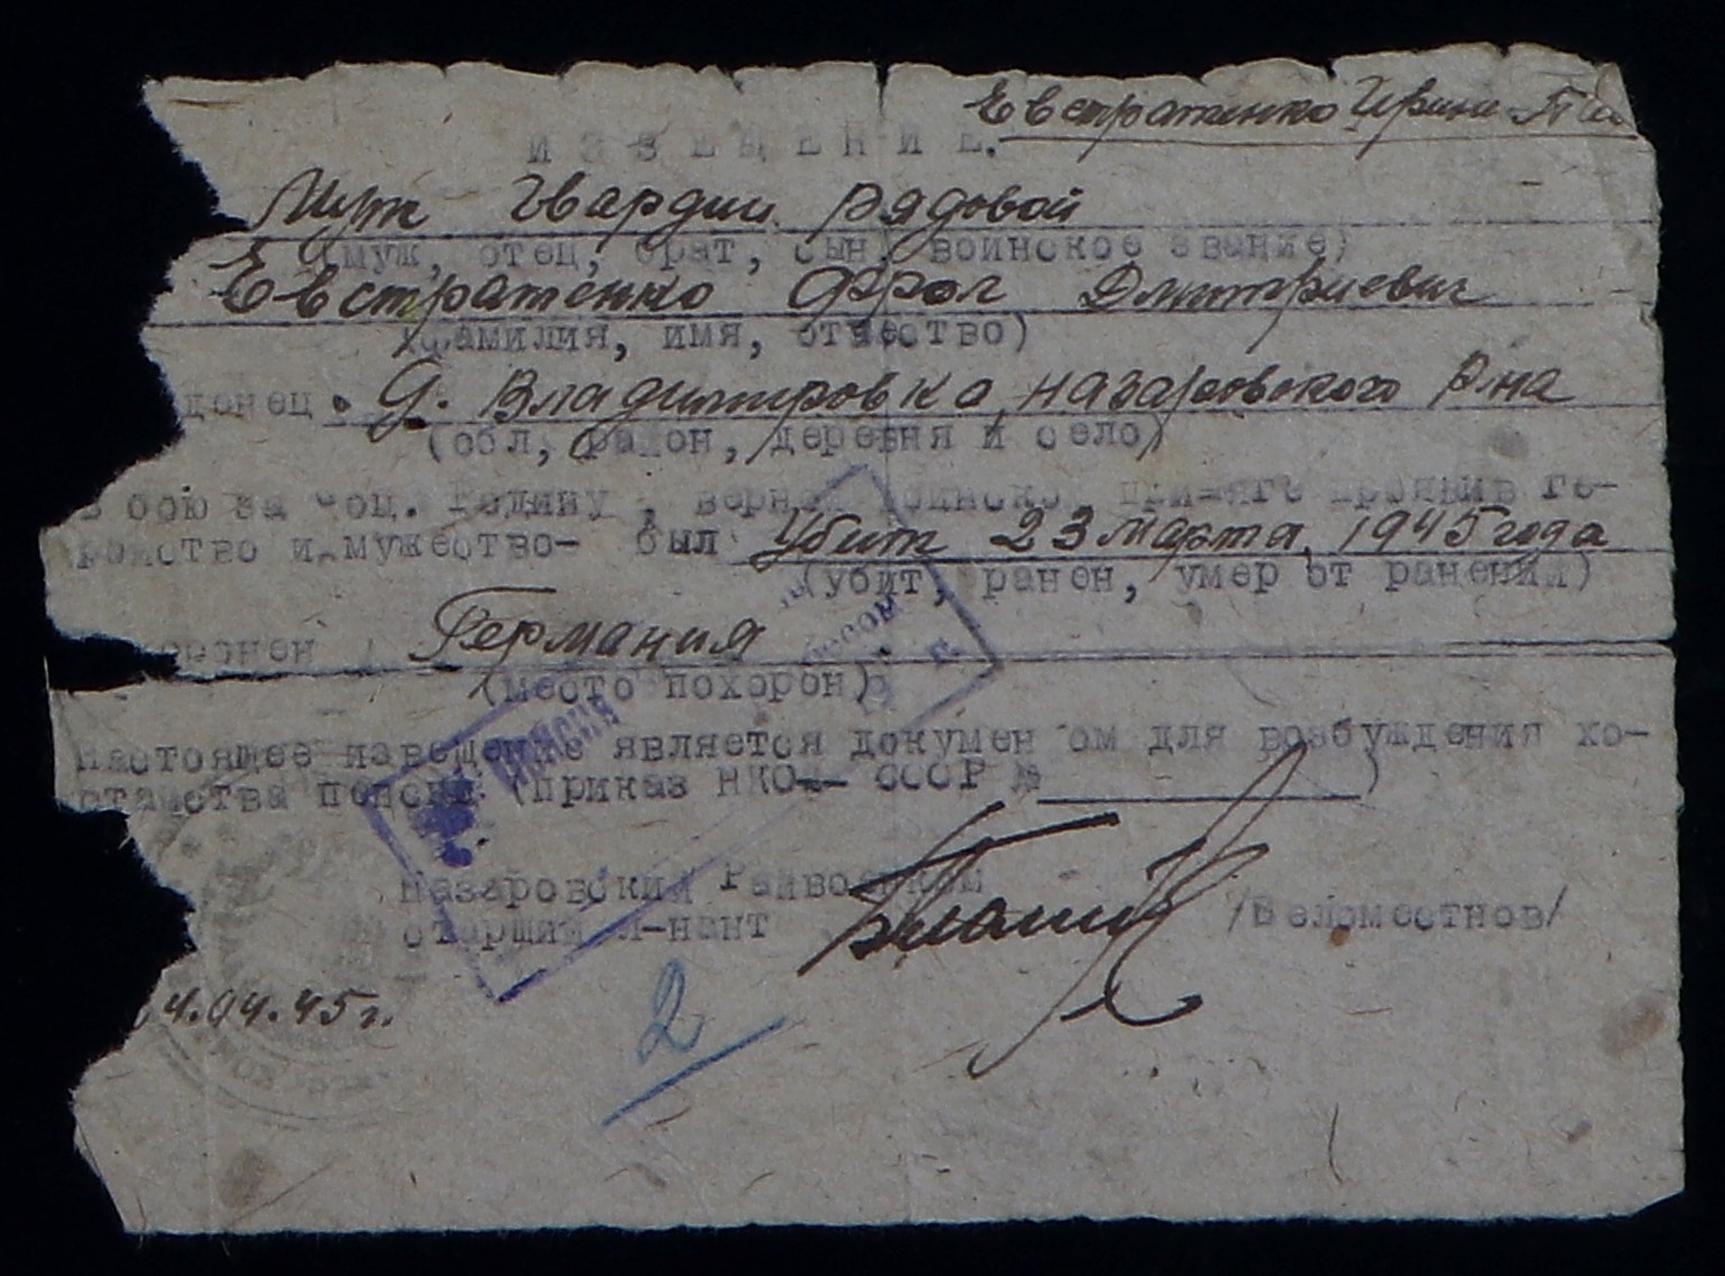 Евстратенко Ирине
ИЗВЕЩЕНИЕ.
Муж Гвардии рядовой
(муж, отец, брат, сын, воинское звание)
Евстратенко Фрол Дмитриевич
(фамилия, имя, отчество)
донец. д. Владимировка, Назаровского р-на
(обл, район, деревня и село)
в бою за Соц. Родину, верный воинской присяге проявив ге-
ройство и мужество- был Убит 23 марта, 1945 года
(убит, ранен, умер от ранений)
оронен Германия
(место похорон)
Настоящее извещение является документом для возбуждения хо-
датайства пенсии (приказ НКО СССР № )
Назаровский Райвоенком
старший л-нант /Беломестнов/
4.04.45г.
2